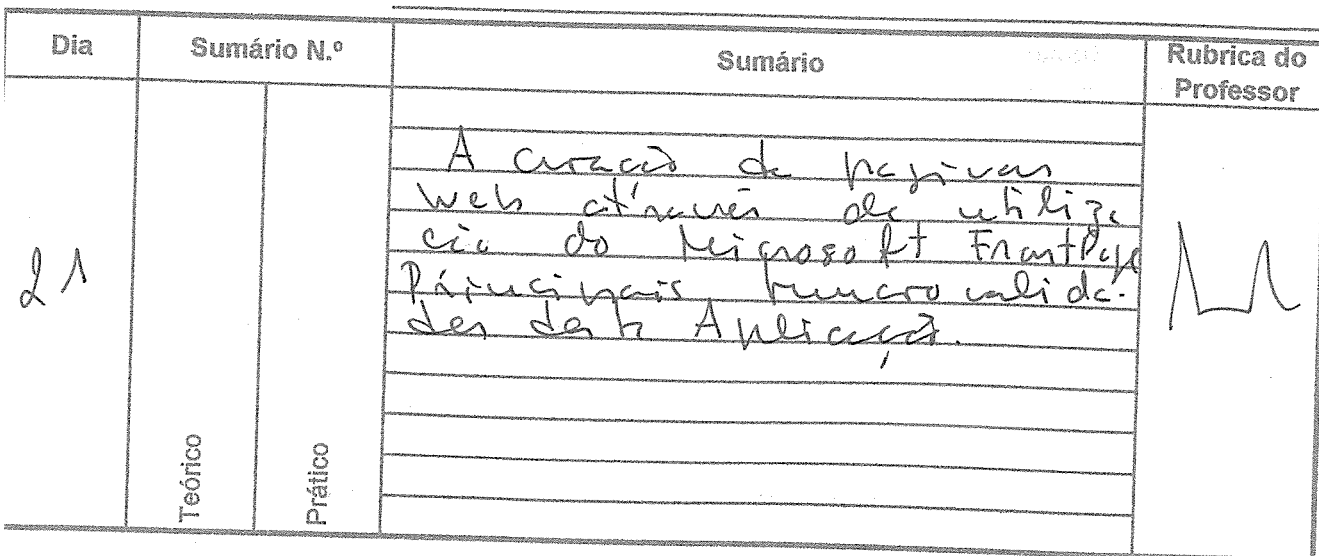 Dia Sumário N.º Sumário Rubrica do
Professor
21
A criação de paginas
web através da utiliza
ção do Microsoft FrontPage
Principais funcionalida-
des desta Aplicação.
Teórico
Prático